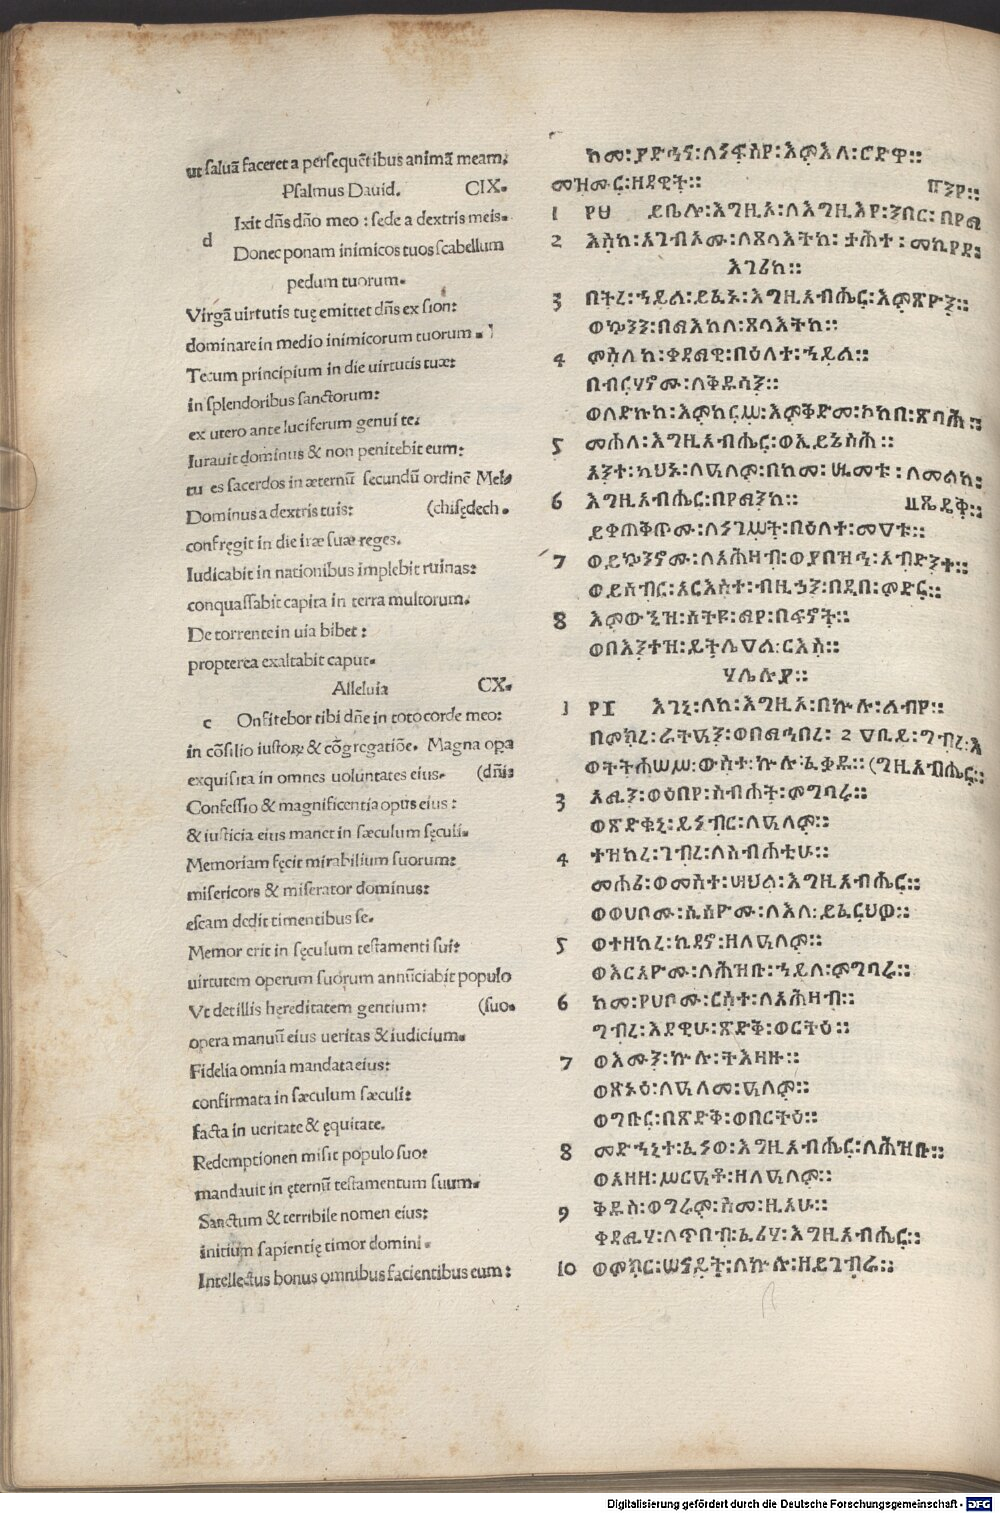 ut ſaluā faceret a perſequētibus animā meam,
Pſalmus Dauid. CIX.
d Ixit dn̄s dn̄o meo : ſede a dextris meis.
Donec ponam inimicos tuos ſcabellum
pedum tuorum.
Virgā uirtutis tuę emittet dn̄s ex ſion:
dominare in medio inimicorum tuorum.
Tecum principium in die uirtutis tuæ:
in ſplendoribus ſanctorum:
ex utero ante luciferum genui te:
Iurauit dominus & non penitebit eum:
tu es ſacerdos in æternū ſecundū ordinē Mel
Dominus a dextris tuis: (chiſędech.
confręgit in die iræ ſuæ reges.
Iudicabit in nationibus implebit ruinas:
conquaſſabit capita in terra multorum.
De torrente in uia bibet :
propterea exaltabit caput.
Alleluia CX.
c Onfitebor tibi dn̄e in toto corde meo:
in cōſilio iuſtoꝝ & cōgregatiōe. Magna oꝑa
exquiſita in omnes uoluntates eius. (dn̄i:
Confeſſio & magnificentia opus eius :
& iuſticia eius manet in ſæculum ſęculi.
Memoriam fęcit mirabilium ſuorum:
miſericors & miſerator dominus:
eſcam dedit timentibus ſe.
Memor erit in ſęculum teſtamenti ſui:
uirtutem operum ſuorum annūciabit populo
Vt det illis hęreditatem gentium: (ſuo.
opera manuū eius ueritas & iudicium.
Fidelia omnia mandata eius:
confirmata in ſæculum ſæculi:
facta in ueritate & ęquitate.
Redemptionen miſit populo ſuo:
mandauit in ęternū teſtamentum ſuum.
Sanctum & terribile nomen eius:
initium ſapientię timor domini.
Intellectus bonus omnibus facientibus eum:
ከመ፡ ያድኅና፡ ለነፍስየ፡ እምእለ፡ ሮድዋ።
መዝሙር፡ ዘዳዊት።
1 ፻፱ ይቤሎ፡ እግዚአ፡ ለእግዚእየ፡ ንበር፡ በየማ
2 እስከ፡ አገብኦሙ፡ ለጸላእትከ፡ ታሕተ፡ መከየደ፡
እገሪከ።
3 በትረ፡ ኀይል፡ ይፌኑ፡ እግዚአብሔር፡ እምጽዮን።
ወኰንን፡ በማእከለ፡ ጸላእትከ።
4 ምስሌከ፡ ቀዳማዊ፡ በዕለተ፡ ኀይል።
በብርሃኖሙ፡ ለቅዱሳን።
ወለድኩከ፡ እምከርሥ፡ እምቅድመ፡ ኮከበ፡ ጽባሕ።
5 መሐለ፡ እግዚአብሔር፡ ወኢይኔስሕ።
አንተ፡ ካህኑ፡ ለዓለም፡ በከመ፡ ሢመቱ፡ ለመልከ፡
6 እግዚአብሔር፡ በየማንከ።
ይቀጠቅጦሙ፡ ለነገሥት፡ በዕለተ፡ መዓቱ።
7 ወይኴንኖሙ፡ ለአሕዛብ፡ ወያበዝኅ፡ አብድንተ።
ወይሰብር፡ አርእስተ፡ ብዙኃን፡ በዲበ፡ ምድር።
8 እምውኂዝ፡ ሰትዩ፡ ማየ፡ በፍኖት።
ወበእንተዝ፡ ይትሌዓል፡ ርእስ።
ሃሌሉያ።
1 ፻፲ እገኒ፡ ለከ፡ እግዚኦ፡ በኵሉ፡ ልብየ።
በምክረ፡ ራትዓን፡ ወበማኅበር፡ 2 ዓቢይ፡ ግብረ፡ እ
ወትትሐሠሥ፡ ውስተ፡ ኵሉ፡ ፈቃዱ። (ግዚአብሔር።
3 አሚን፡ ወዕበየ፡ ስብሐት፡ ምግባሩ።
ወጽድቁኒ፡ ይነብር፡ ለዓለም።
4 ተዝከረ፡ ገብረ፡ ለስብሐቲሁ።
መሐሪ፡ ወመስተሣህል፡ እግዚአብሔር።
ወወሀቦሙ፡ ሲሳዮሙ፡ ለእለ፡ ይፈርህዎ።
5 ወተዘከረ፡ ኪዳኖ፡ ዘለዓለም።
ወአርአዮሙ፡ ለሕዝቡ፡ ኀይለ፡ ምግባሩ።
6 ከመ፡ የሀቦሙ፡ ርስተ፡ ለአሕዛብ።
ግብረ፡ እደዊሁ፡ ጽድቅ፡ ወርትዕ።
7 ወእሙን፡ ኵሉ፡ ትእዛዙ።
ወጽኑዕ፡ ለዓለመ፡ ዓለም።
ወግቡር፡ በጽድቅ፡ ወበርትዕ።
8 መድኀኒተ፡ ፈነወ፡ እግዚአብሔር፡ ለሕዝቡ።
ወአዘዘ፡ ሥርዓቶ፡ ዘለዓለም።
9 ቅዱስ፡ ወግሩም፡ ስመ፡ ዚአሁ።
ቀዳሚሃ፡ ለጥበብ፡ ፈሪሃ፡ እግዚአብሔር።
10 ወምክር፡ ሠናይት፡ ለኵሉ፡ ዘይገብራ።
Digitalisierung gefördert durch die Deutsche Forschungsgemeinschaft - DFG